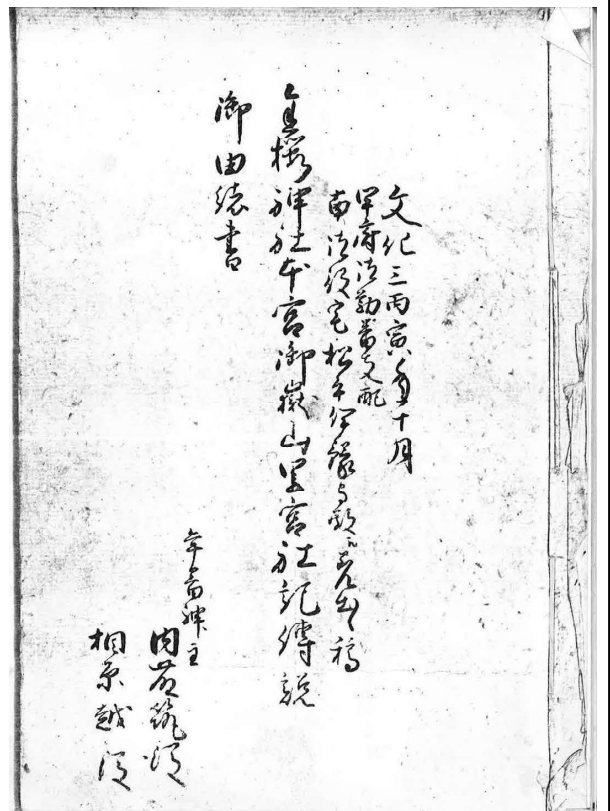 文化三丙寅年十月
甲府御勤番支配
南御役宅松平伊豫守殿 差出 稿
金櫻神社本宮御嶽山里宮社記傳説
御由緒書
年番神主
内藤筑後
相原越後